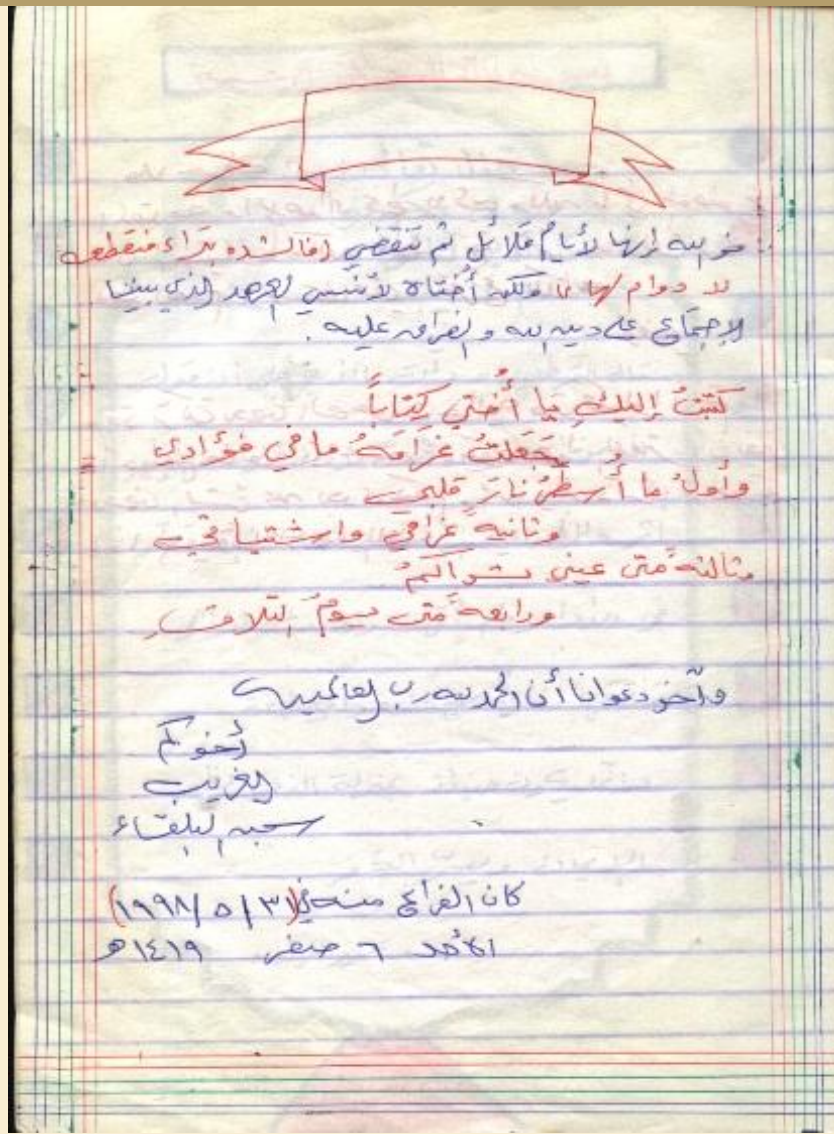 فوالله إنها لأيام قلائل ثم تنقضي (فالشده بتراء منقطعه
لا دوام لها) ولكن أختاه لا ننسى العهد الذي بيننا
الاجتماع على دين الله والفراق عليه .
كتبتُ إليكِ يا أُختي كِتاباً
و جعلتُ غرامَهُ ما في فؤادي
وأولُ ما أسطرُ نار قلبي
وثانية غرامي واشتياقي
وثالثه متى عيني تراكمُ
ورابعه متى يومُ التلاق
وآخر دعوانا أن الحمد لله رب العالمين
أخوكم
الغريب
سجن البلقاء
كان الفراغ منه في (٣١/ ٥ / ١٩٩٨)
الأحد ٦ صفر ١٤١٩هـ